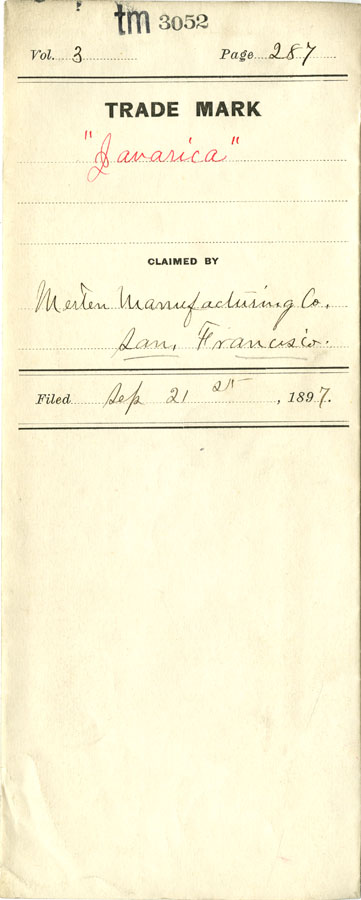 tm 3052
Vol. 3 Page 287
TRADE MARK
"Javarica"
CLAIMED BY
Merten Manufacturing Co.
San Francisco.
Filed Sep 21 st, 1897.